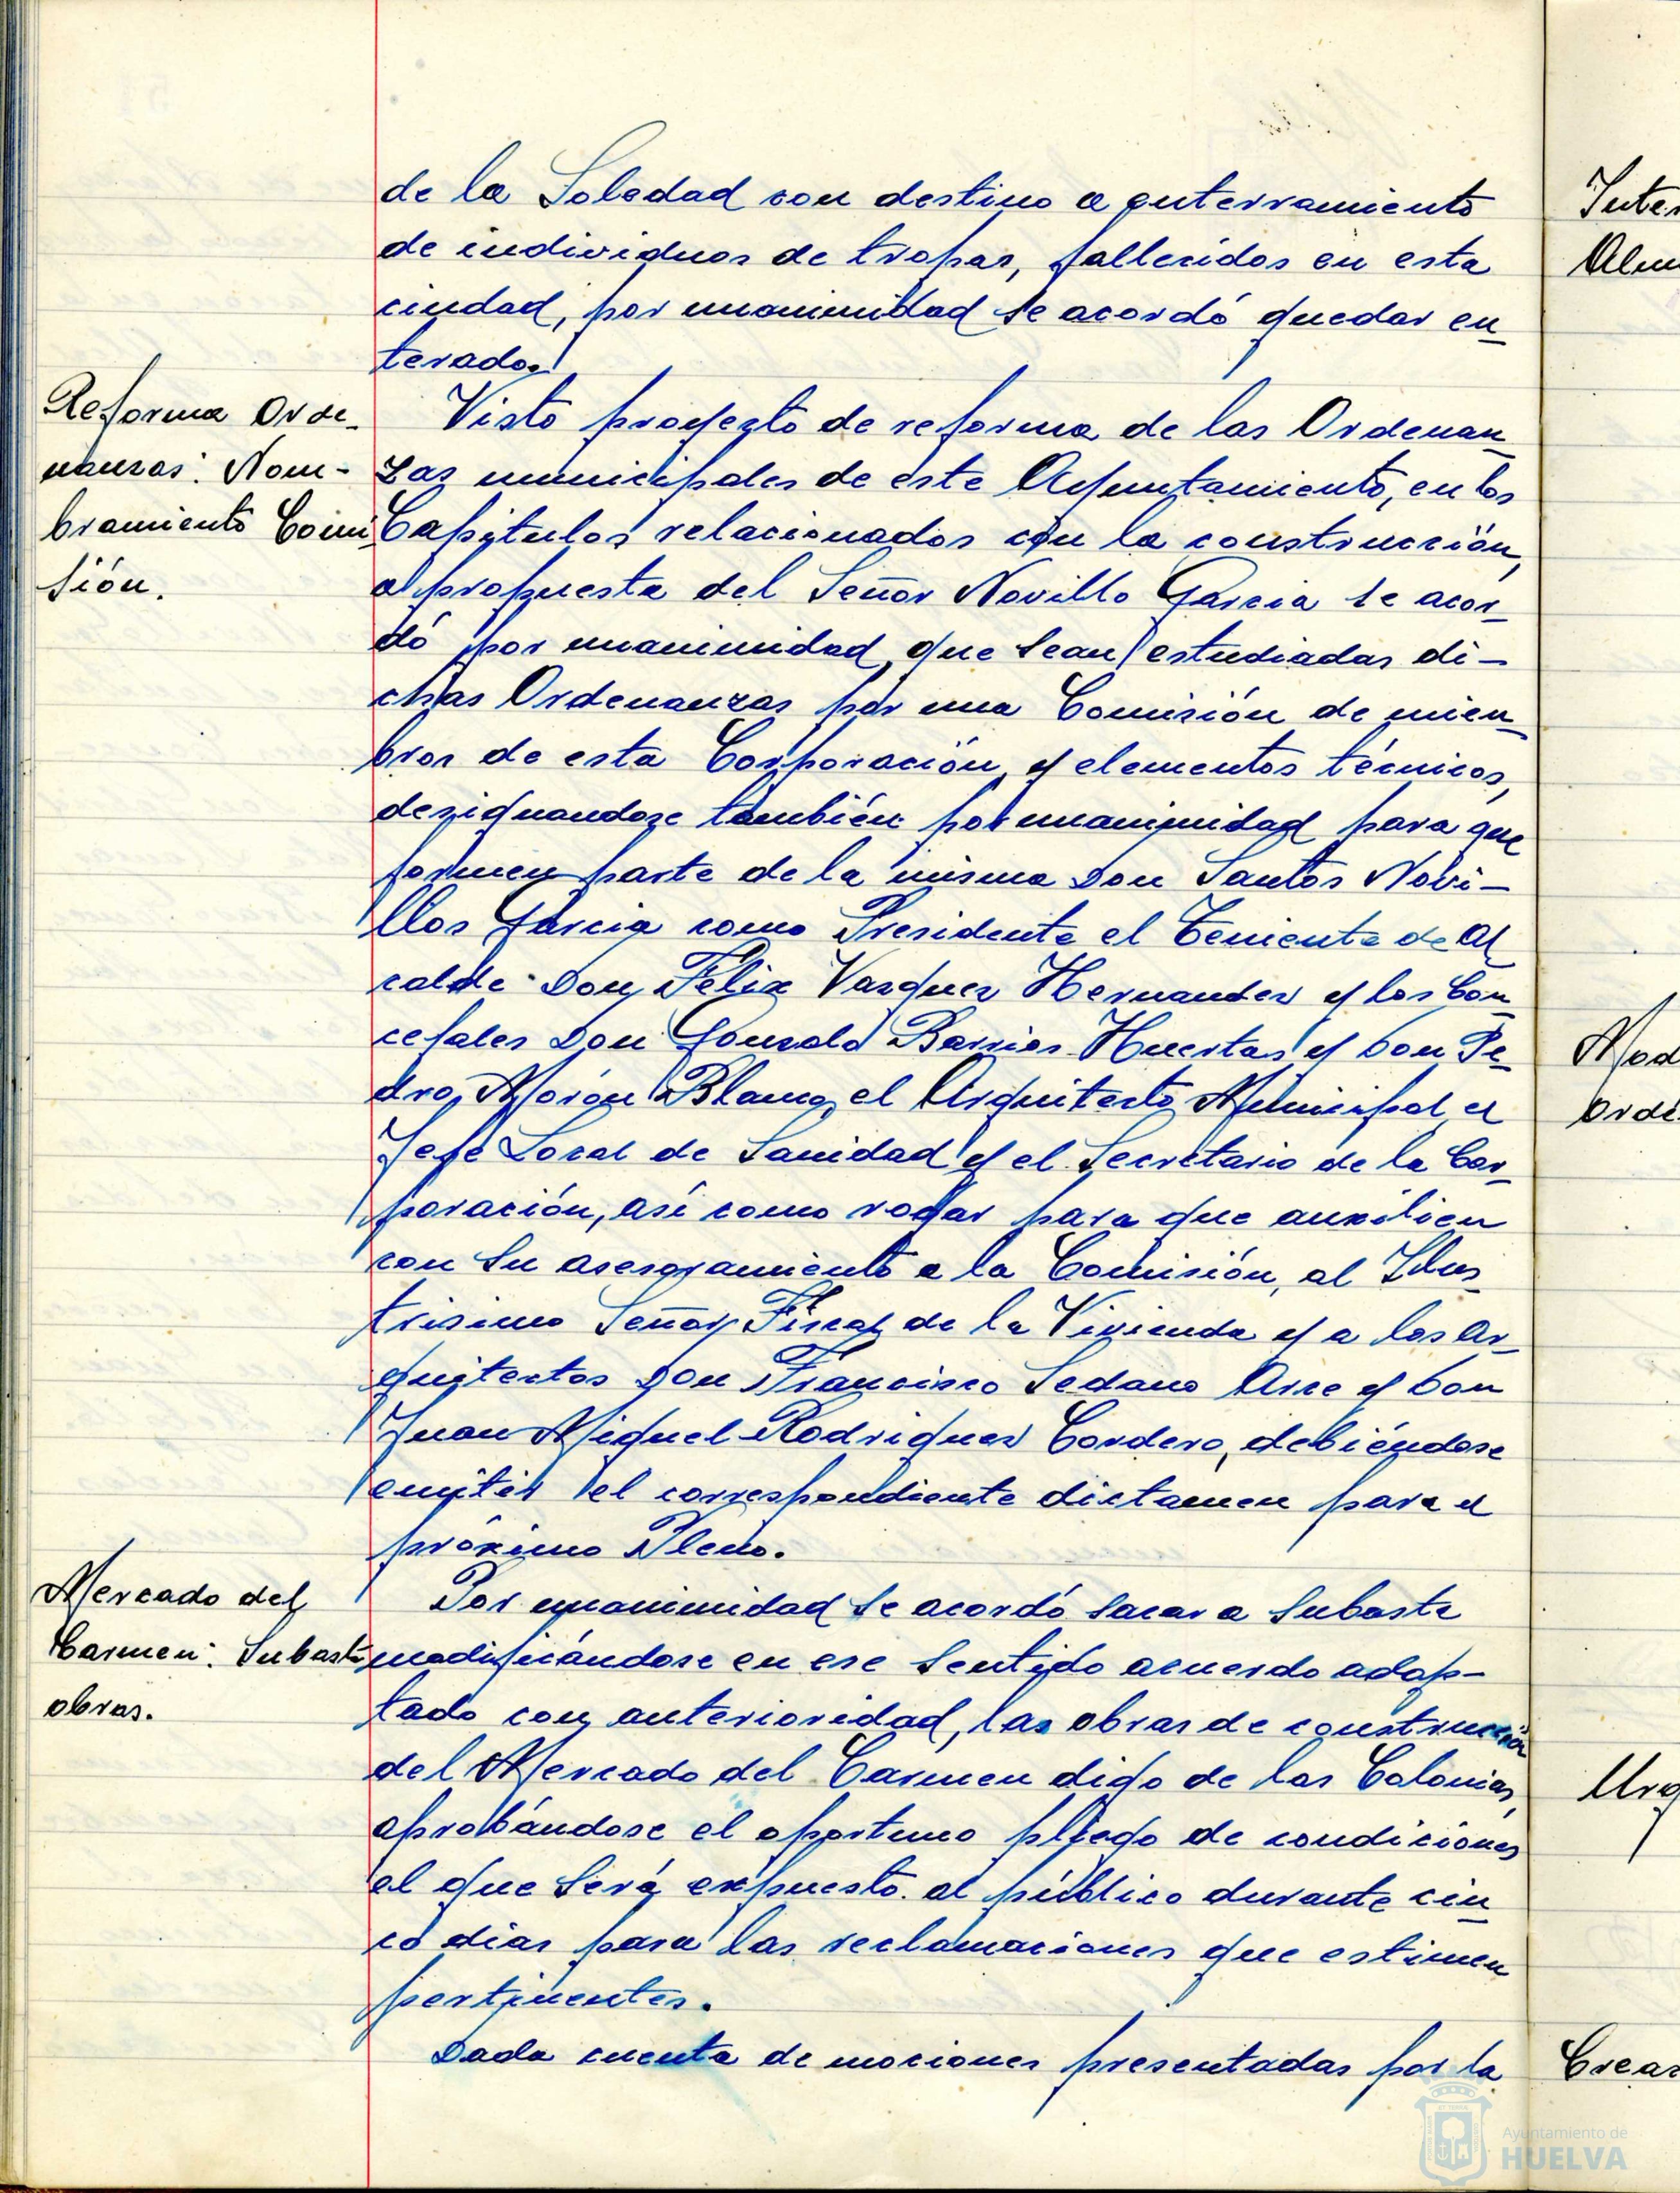 de la Soledad con destino a enterramiento
de individuos de tropas, fallecidos en esta
ciudad, por unanimidad se acordó quedar en
terado.
Reforma Orde-
nanzas: Nom-
bramiento Comi
sión.
Visto proyecto de reforma de las Ordenan
zas municipales de este Ayuntamiento, en los
Capítulos relacionados con la construcción,
a propuesta del Señor Novillo Garcia se acor-
dó por unanimidad que sean estudiadas di-
chas Ordenanzas por una Comisión de miem
bros de esta Corporación y elementos técnicos,
designandose también por unanimidad para que
formen parte de la misma Don Santos Novi-
llos Garcia como Presidente el Teniente de Al
calde Don Félix Vazquez Hernandez y los Con
cejales Don Gonzalo Barrios Huertas y Don Pe-
dro Morón Blanco, el Arquitecto Municipal, el
Jefe Local de Sanidad y el Secretario de la Cor-
poración, así como rogar para que auxilien
con su asesoramiento a la Comisión, al Ilus
trisimo Señor Fiscal de la Vivienda y a los Ar-
quitectos Don Francisco Sedano Arce y Don
Juan Miguel Rodriguez Cordero, debiéndose
emitir el correspondiente dictamen para el
próximo Pleno.
Mercado del
Carmen: Subasta
obras.
Por unanimidad se acordó sacar a subasta
modificándose en ese sentido acuerdo adop-
tado con anterioridad, las obras de construcción
del Mercado del Carmen digo de las Colonias,
aprobándose el oportuno pliego de condiciones
el que será expuesto al público durante cin
co dias para las reclamaciones que estimen
pertinentes.
Dada cuenta de mociones presentadas por la
Inter
Alum
Mod
Orde
Urg
Crear
Ayuntamiento de
HUELVA